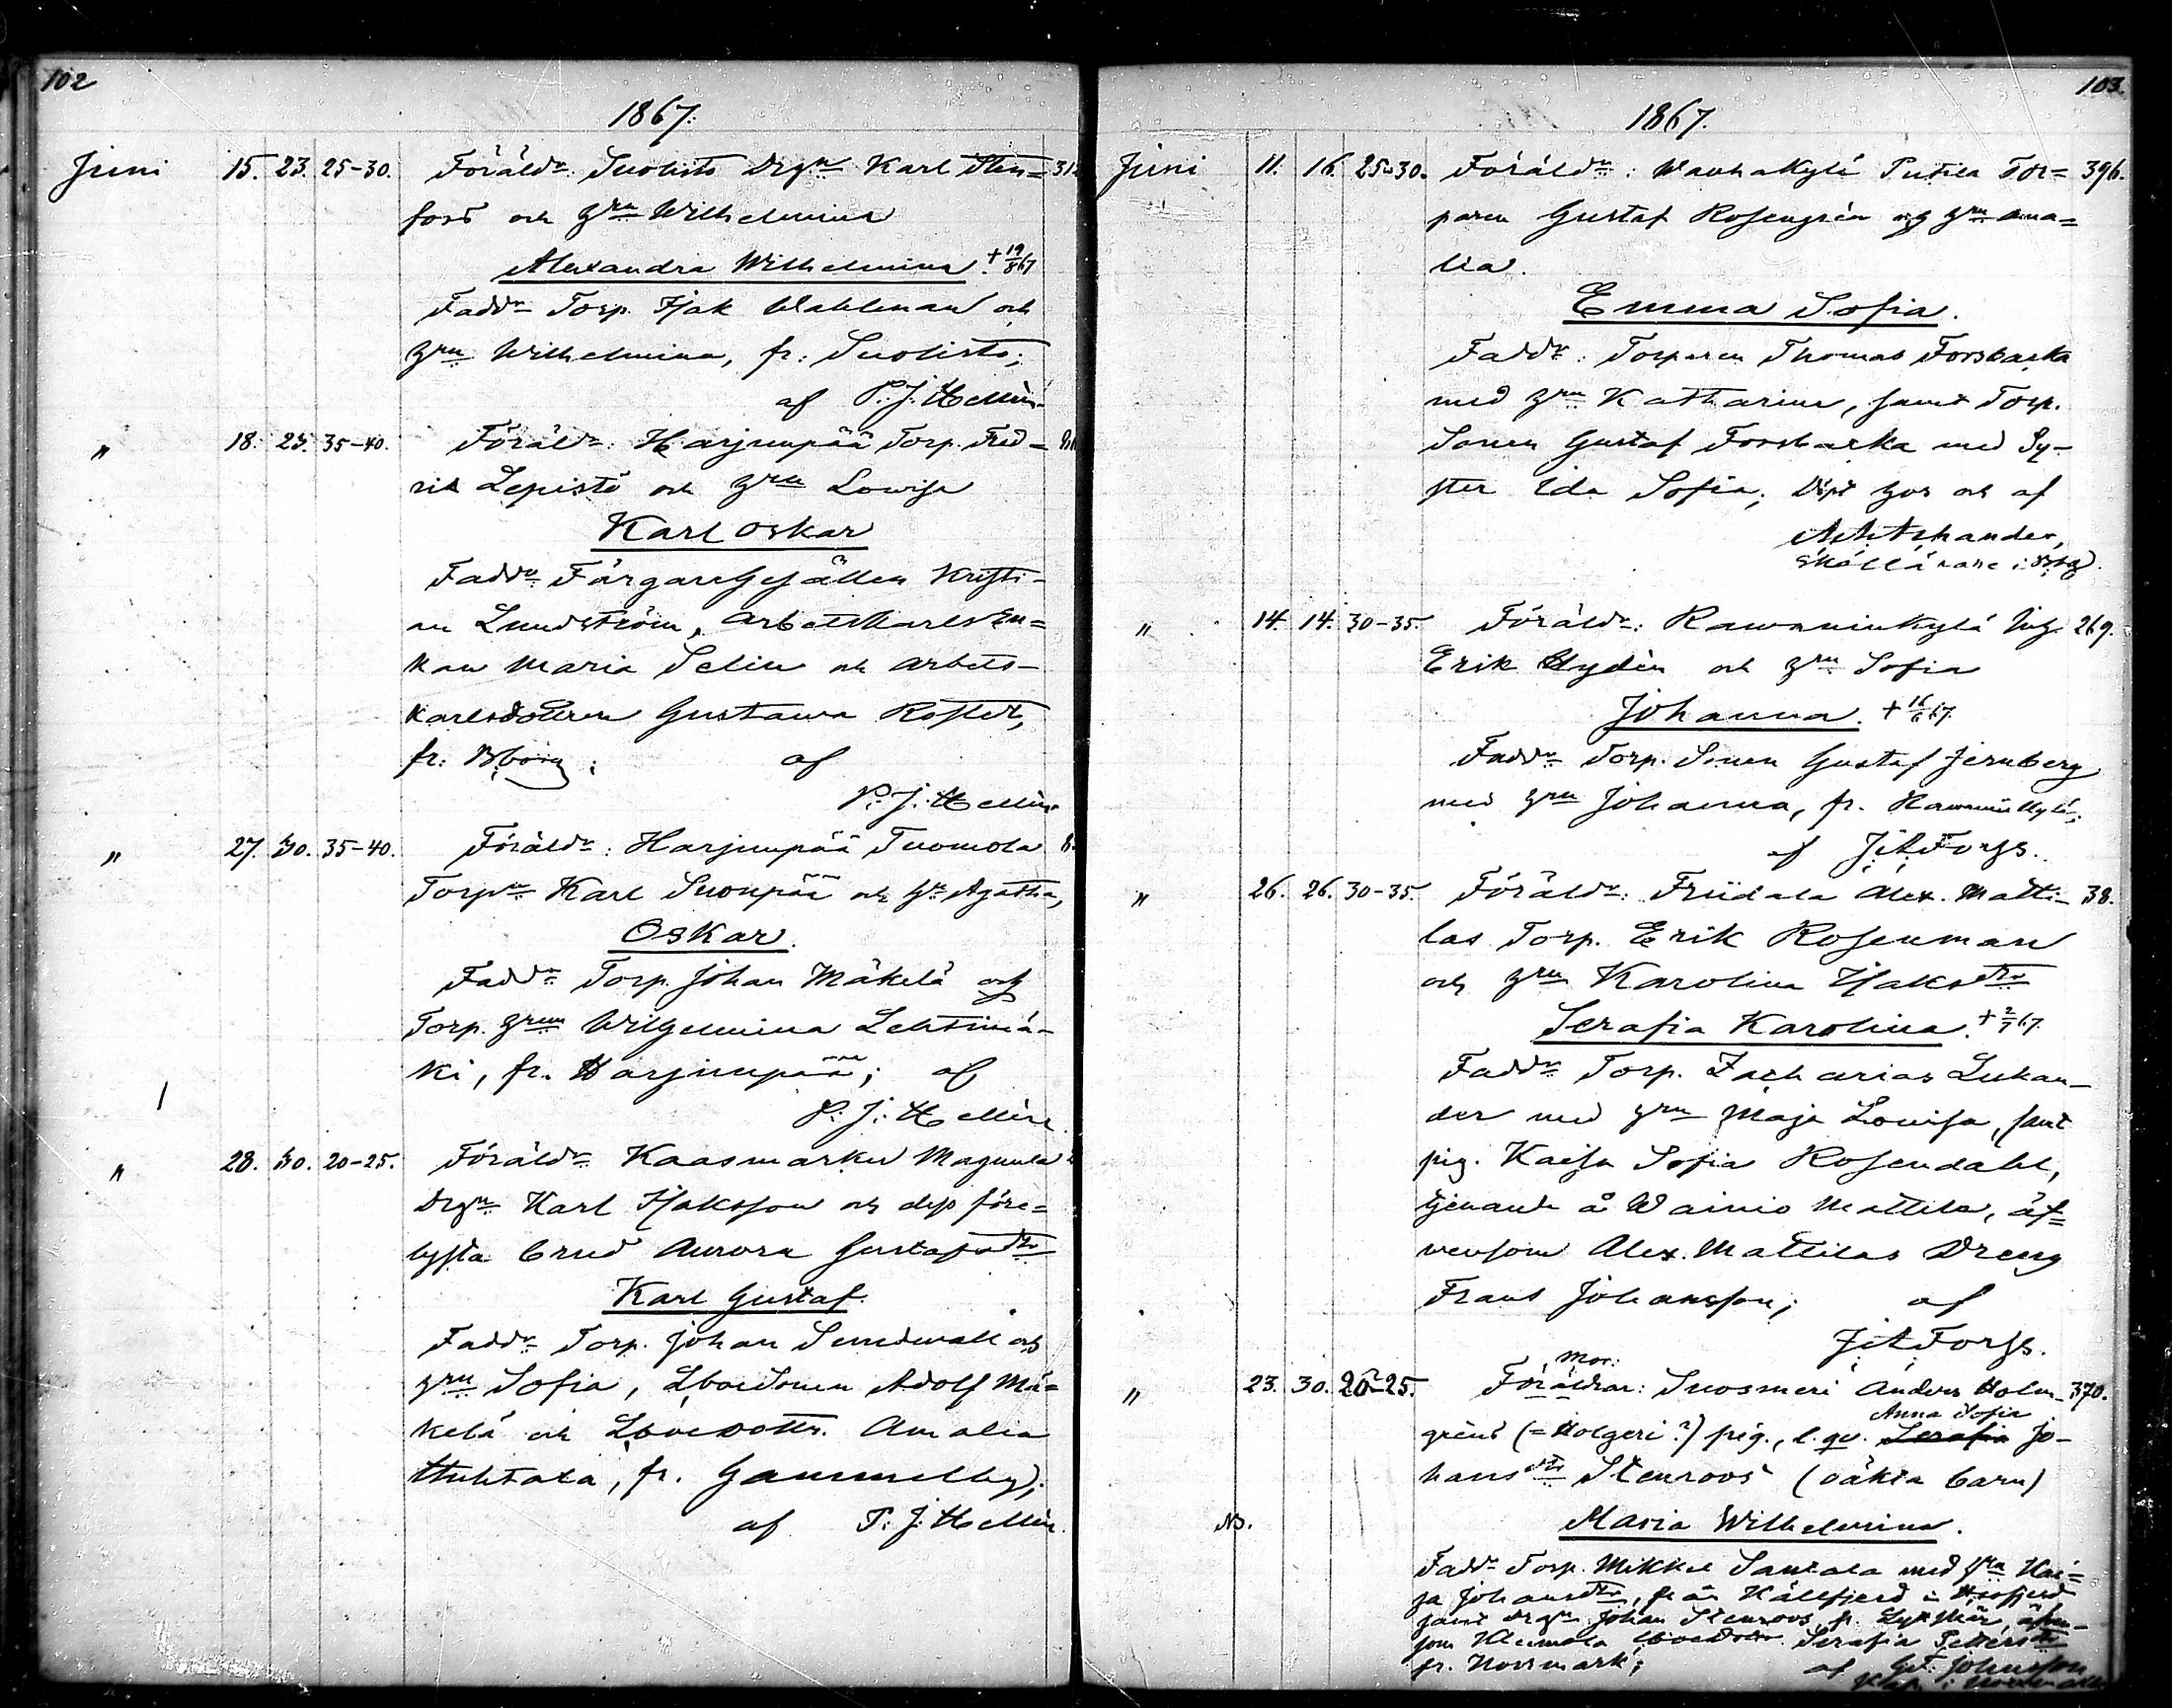 102
1867.
Juni 15. 23. 25-30. Föräldr: Suolisto Drgn Karl Sten= 31
fors och Hru Wilhelmina
Alexandra Wilhelmina. + 19/8 67
Faddr Torp. Isak Wahlman och
Hru Wilhelmina, fr: Suolisto;
af P. J. Hellén
" 18. 23. 35-40. Föräldr: Harjunpää Torp. Fred=
rik Lepistö och Hru Lowisa
Karl Oskar
Faddr Färgaregesällen Kristi-
an Lundström, Arbetskarlsen=
kan Maria Selin och arbets-
karlsdottren Gustawa
fr: Bborg; af
P. J. Hellén
" 27. 30. 35-40. Föräldr: Harjunpää Tuomola
Torpn Karl Suonpää och Hr Agatha,
Oskar.
Faddr Torp. Johan Mäkelä och
Torp. Hrun Wilhelmina Lehtimä-
ki, fr. Harjunpää; af
P. J. Hellén
" 28. 30. 20-25. Föräldr Kaasmarku Magnula
Drgn Karl Isaksson och dess före=
lysta brud Aurora Gustafsdtr
Karl Gustaf.
Faddr Torp. Johan Sundwall och
Hru Sofia, Lboesonen Adolf Mä=
kelä och Lboedottr. Amalia
Huhtala, fr. Gammelby);
af P. J. Hellén.
103.
1867.
Juni 11. 16. 25-30. Föräldr: Wanhakylä Tor= 396.
paren Gustaf Rosengrén och Hru Ama=
lia.
Emma Sofia.
Faddr: Torparen Thomas Forsbacka
med Hru Katharina, samt Torp.
Sonen Gustaf Forsbacka med Sy-
ster Ida Sofia; Döpt hos och af
Skollärare i
" 14. 14. 30-35. Föräldr: Rawaninkylä 269.
Erik Hydén och Hru Sofia
Johanna. + 16/6 67.
Faddr Torp. Sonen Gustaf Jernberg
med Hru Johanna, fr. Rawaninkylä;
af J. A. Forss.
" 26. 26. 30-35. Föräldr: Friidala Alex. Matti- 38.
las Torp. Erik Rosenman
och Hru Karolina Isaksdtr
Serafia Karolina. + 2/7 67.
Faddr Torp. Zacharias Lukan-
der med Hru Maja Lowisa, samt
pig. Kaisa Sofia Rosendahl,
tjenande å Wainio Mattila, äf=
wensom Alex. Mattilas Dreng
Frans Johansson; af
J. A. Forss.
Mor:
" 23. 30. 20-25. Föräldrar: Suosmeri Anders Holm- 370.
Anna Sofia
gréns (=Holgeri?) pig., l. qv. Serafia Jo-
hansdtr Stenroos (oäkta barn)
NB. Maria Wilhelmina.
Faddr Torp. Mikkel Santala med Hru Kai=
sa Johansdtr, från Källfjerd i
samt Drgn Johan Stenroos fr. äfwen-
som Serafia Pettersdtr
fr. Norrmark; af Johnsson